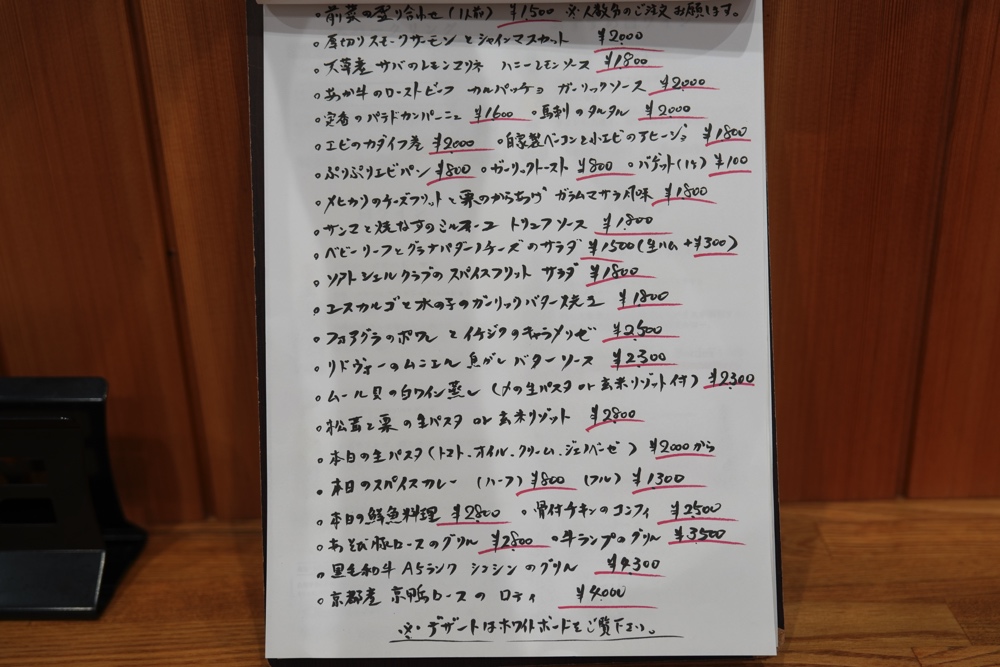 ・前菜の盛り合わせ (1人前) ¥1500 ※人数分のご注文お願します。
・厚切りスモークサーモンとシャインマスカット ¥2000
・天草産サバのレモンマリネ ハニーレモンソース ¥1800
・あか牛のローストビーフ カルパッチョ ガーリックソース ¥2000
・定番のパテドカンパーニュ ¥1600 ・馬刺のタルタル ¥2000
・エビのカダイフ巻 ¥2000 ・自家製ベーコンと小エビのアヒージョ ¥1800
・ぷりぷりエビパン ¥800 ・ガーリックトースト ¥800 ・バゲット(1ケ) ¥100
・メヒカリのチーズフリットと栗のからあげ ガラムマサラ風味 ¥1800
・サンマと焼なすのミルフィーユ トリュフソース ¥1800
・ベビーリーフとグラナパダーノチーズのサラダ ¥1500(生ハム+¥300)
・ソフトシェルクラブのスパイスフリット サラダ ¥1800
・エスカルゴと木の子のガーリックバター焼き ¥1800
・フォアグラのポワレとイチジクのキャラメリゼ ¥2500
・リドヴォーのムニエル 焦がしバターソース ¥2300
・ムール貝の白ワイン蒸し (〆の生パスタor玄米リゾット付) ¥2300
・松茸と栗の生パスタor玄米リゾット ¥2800
・本日の生パスタ(トマト、オイル、クリーム、ジェノベーゼ) ¥2000から
・本日のスパイスカレー (ハーフ) ¥800 (フル) ¥1300
・本日の鮮魚料理 ¥2800 ・骨付チキンのコンフィ ¥2500
・あそび豚ロースのグリル ¥2800 ・牛ランプのグリル ¥3500
・黒毛和牛A5ランク シンシンのグリル ¥4300
・京都産 京鴨ロースのロティ ¥4000
※デザートはホワイトボードをご覧下さい。